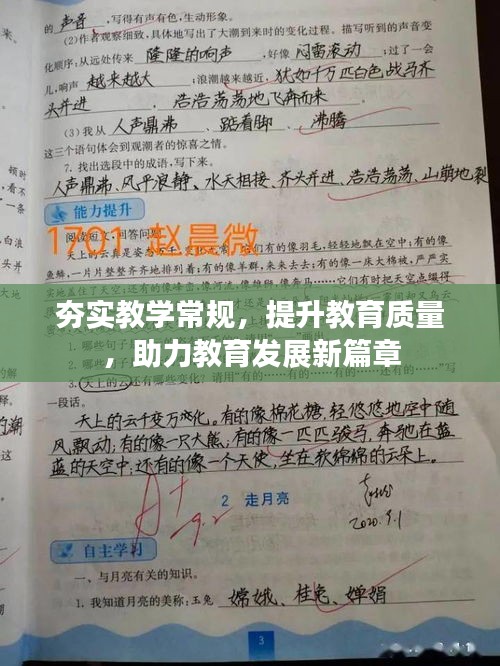 的声音,写得有声有色,生动形象。
(2)作者观察细致,具体地写出了大潮到来时的变化过程。描写听到的声音变
化顺序:从远处传来 隆隆的响声 ,好像 闷雷滚动 ;过了一会
儿,响声 越来越大 ;浪潮越来越近, 犹如千万匹白色战马齐
头并进 、 浩浩荡荡地飞奔而来 。
(3)我从 人声鼎沸 、 踮着脚 、 沸腾
这三个语句体会到观潮者的惊喜之情。
7. 找出选段中的成语,写下来。
人声鼎沸、风平浪静、水天相接、齐头并进、浩浩荡荡、山崩地裂
能力提升
阅读短文,回答问题。
1701 赵晨微
天上的云真是 它们有的像羽毛,轻轻地飘在空中;有的像
鱼鳞,一片片整整齐齐地排列着;有的像羊群,来来去去;有的像一床大棉被,严严实
夯实教学常规,提升教育质量
,助力教育发展新篇章
3. 天上的云还有哪些变化?请用“有的
一段话。
天上的云千变万化。有的像棉花糖,轻悠悠地空中随
风飘动;有的像一只大熊;有的像一匹匹骏马,奔驰在蓝
蓝的天空中;还有的像一个天使,坐在软绵绵的云朵上。
A+
9.2
2020.9.1
2 走月亮
自主学习
一、与月亮有关的知识。
1. 我知道月亮的美称:玉兔 嫦娥、桂兔、婵娟
3